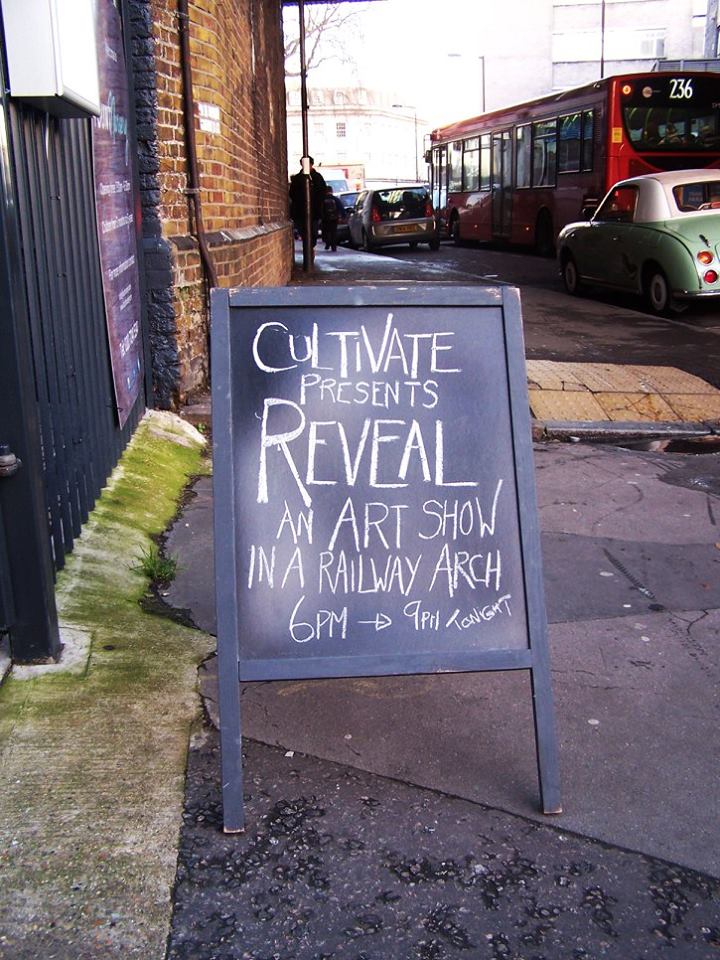 CULTIVATE
PRESENTS
REVEAL
AN ART SHOW
IN A RAILWAY ARCH
6PM → 9PM TONIGHT
236